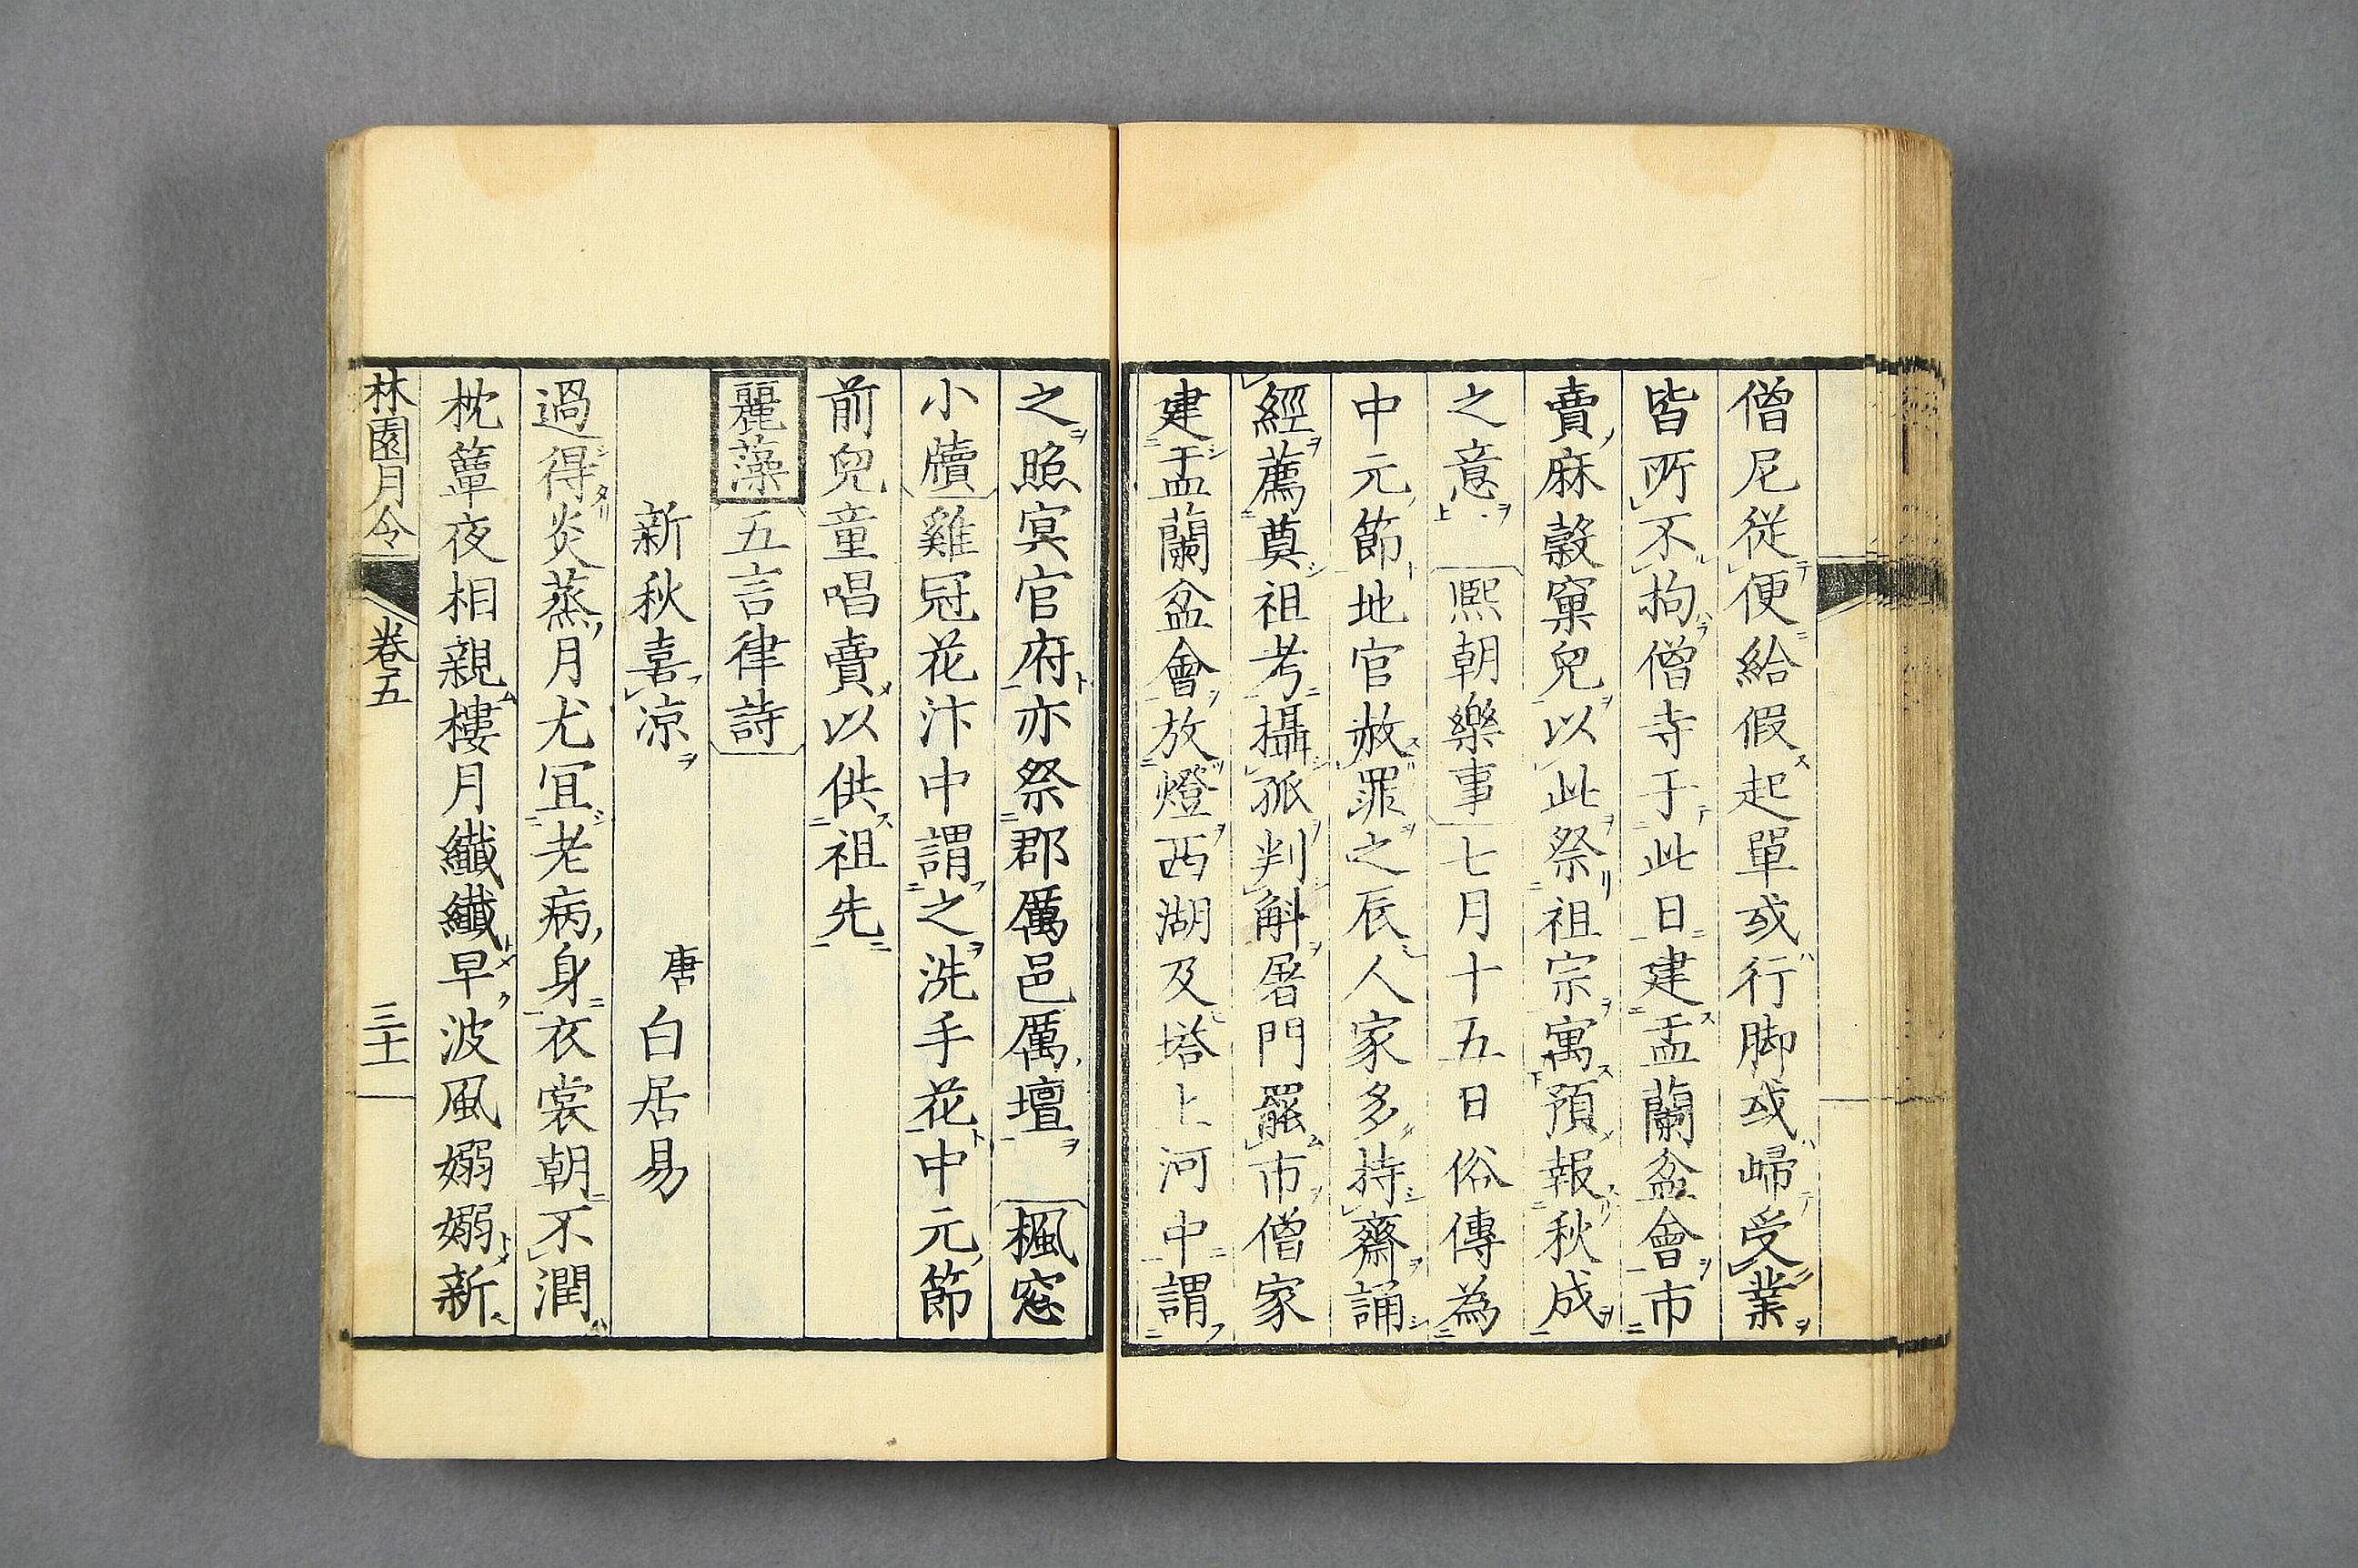 僧尼從便給假起單或行脚或歸受業
皆所不拘僧寺于此日建盂蘭盆會市
賣麻穀窠兒以此祭祖宗寓預報秋成
之意 熙朝樂事七月十五日俗傳為
中元節地官赦罪之辰人家多持齋誦
經薦奠祖考攝孤判斛屠門罷市僧家
建盂蘭盆會放燈西湖及塔上河中謂
之照冥官府亦祭郡厲邑厲壇 楓窓
小牘雞冠花汴中謂之洗手花中元節
前兒童唱賣以供祖先
麗藻 五言律詩
新秋喜凉 唐 白居易
過得炎蒸月尤宜老病身衣裳朝不潤
枕簟夜相親樓月纎纎早波風嫋嫋新
林園月令 卷五 三十一